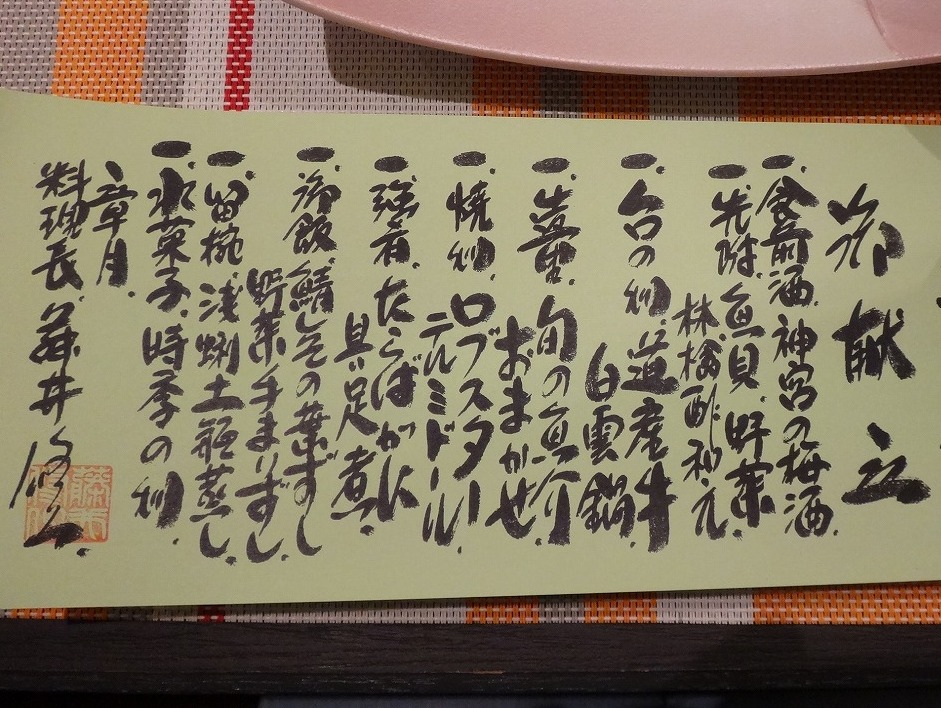 御献立
一、食前酒、神宮の梅酒、
一、先附、魚貝、野菜
林檎酢和え、
一、台の物、道産牛
白雲鍋、
一、造里、旬の魚介
おまかせ、
一、焼物、ロブスター
テルミドール、
一、強肴、たらばがに
具足煮、
一、御飯、その葉ずし
野菜手まりずし、
一、留椀、浅蜊土瓶蒸し、
一、水菓子、時季の物、
章月、
料理長、藤井修一、